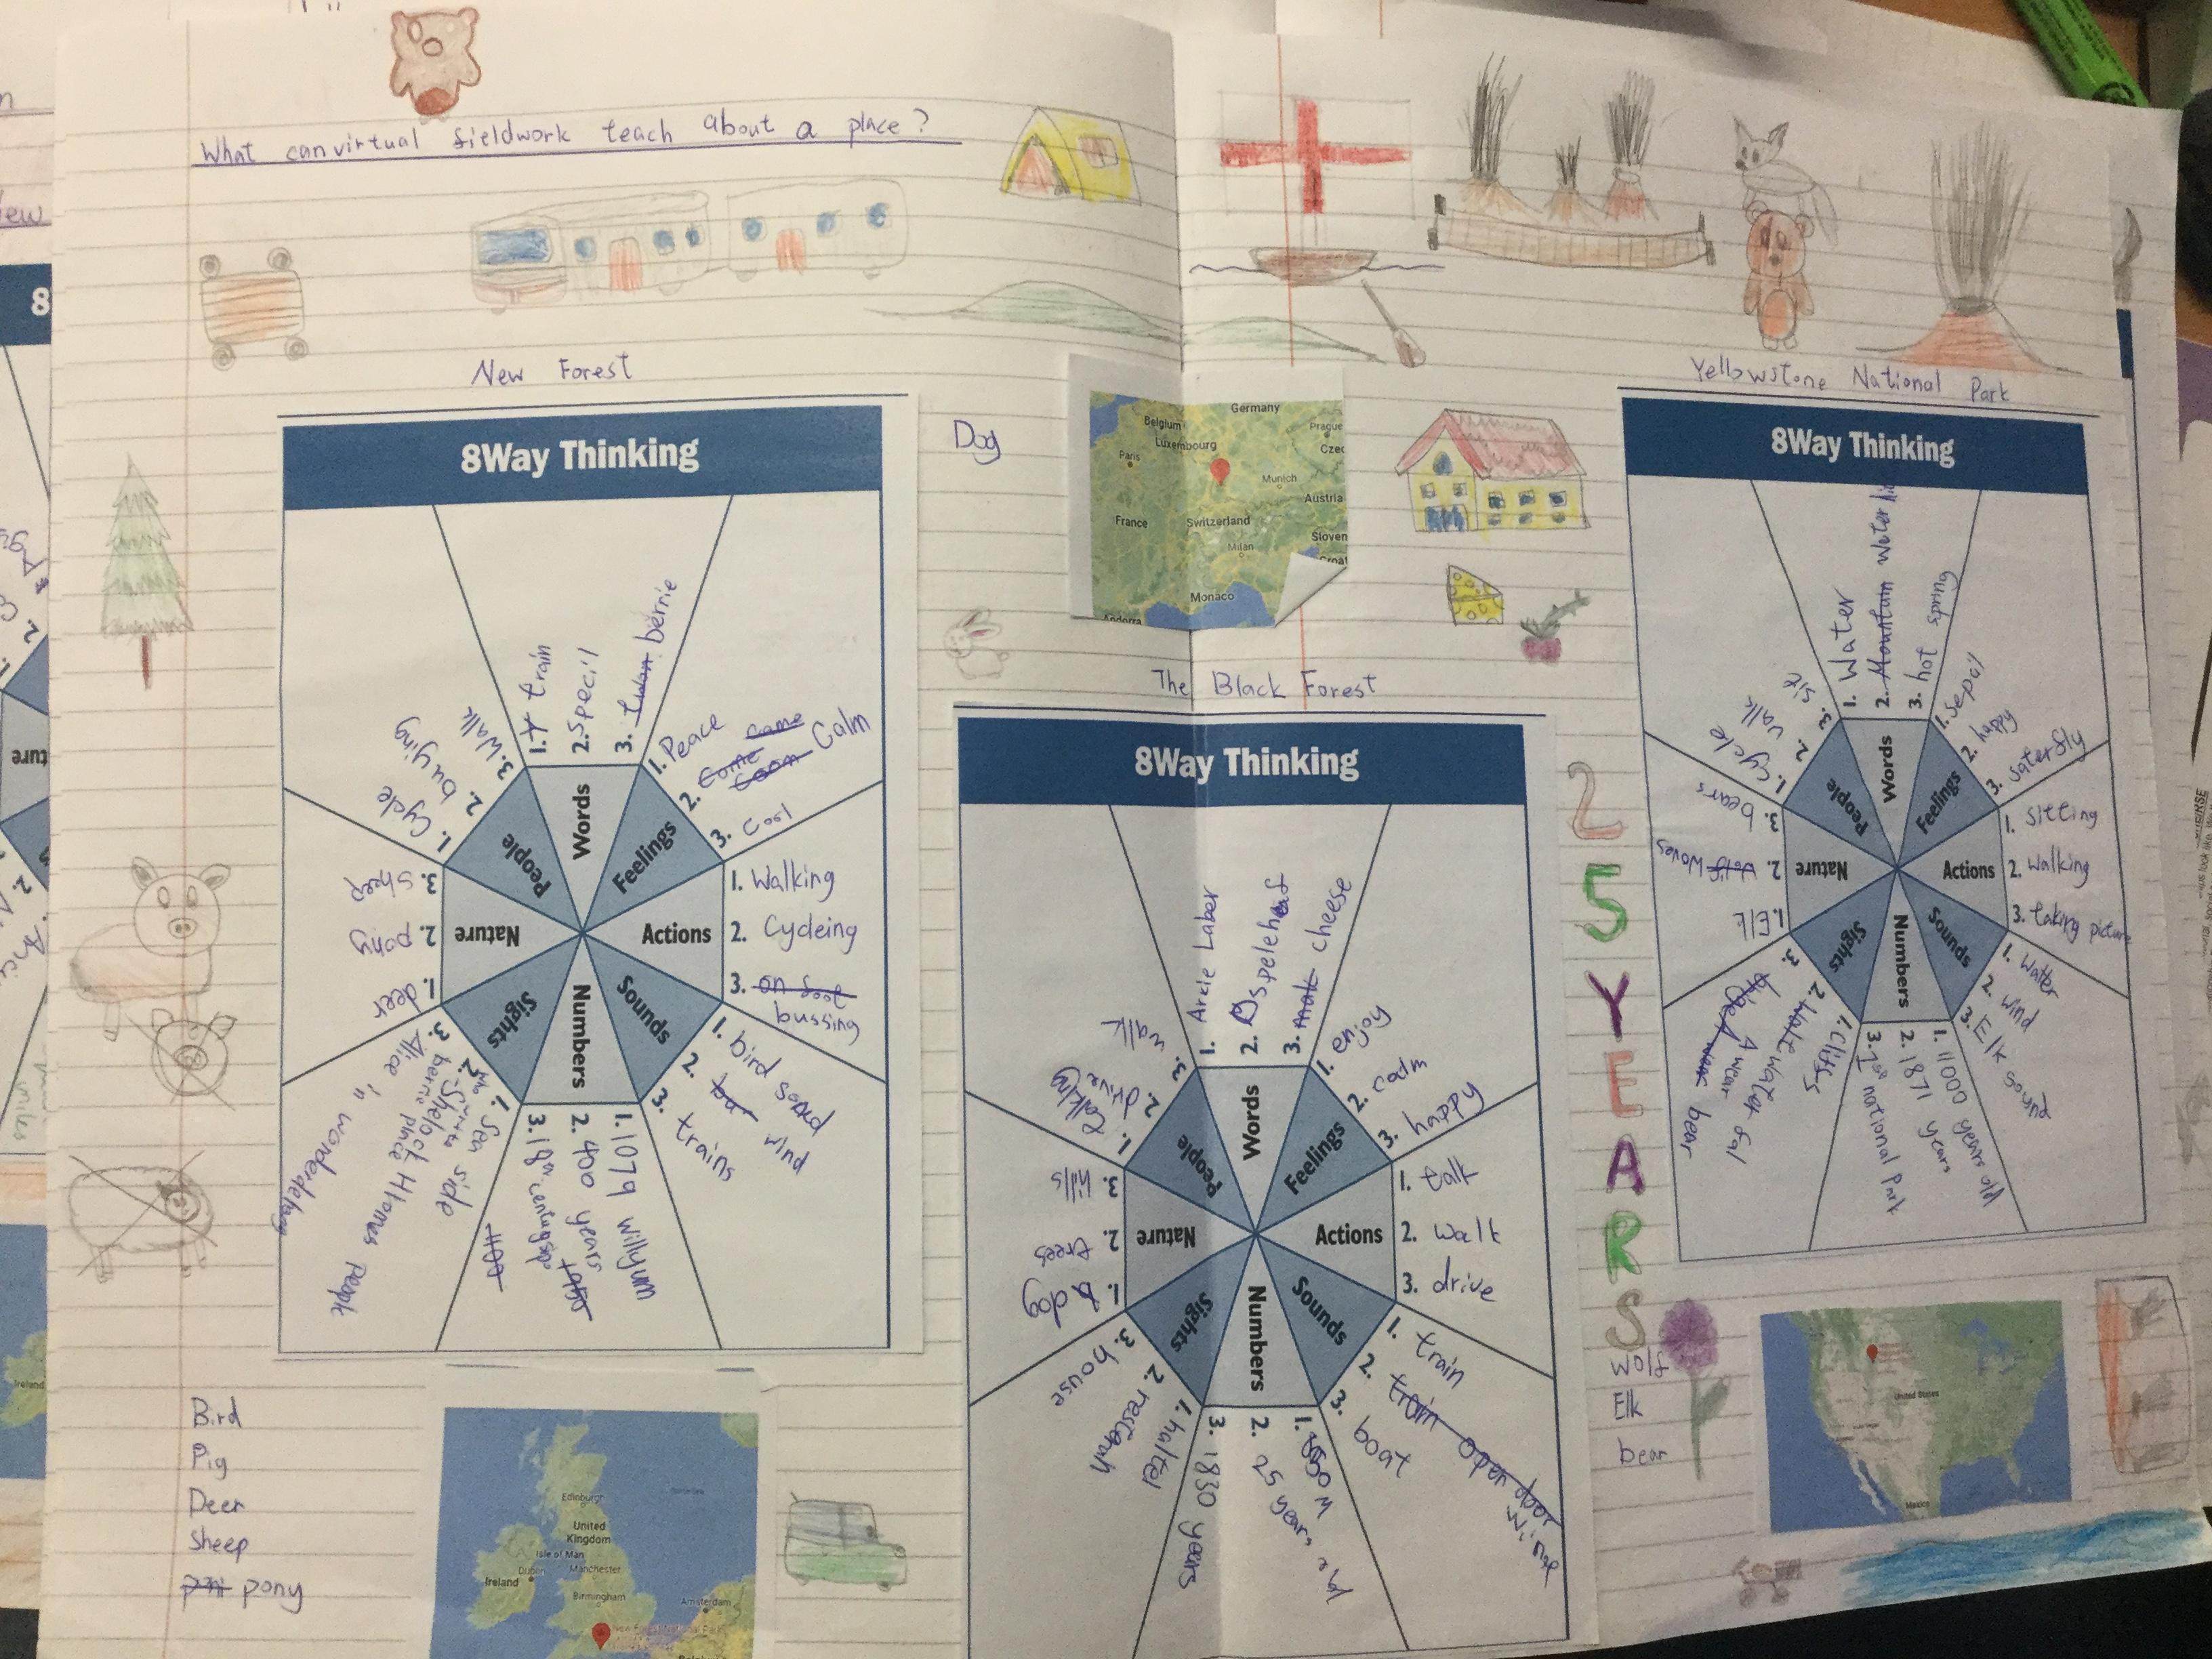 What can virtual fieldwork teach about a place?
New Forest
8Way Thinking
Words
1. train
2. Specil
3. berrie
Feelings
1. Peace
2. Calm
3. cool
Actions
1. Walking
2. Cycleing
3. on foot
bussing
Sounds
1. bird sound
2. wind
3. trains
Numbers
1. 1079 willyum
2. 400 years
3. 18th
Sights
1. Sea side
2. Shelock Hlomes people
berrie place
3. Alice in
Nature
1. deer
2. pony
3. sheep
People
1. Cycle
2. buying
3. Walk
Bird
Pig
Deer
Sheep
pony
Edinburgh
United
Kingdom
Isle of Man
Dublin
Manchester
Ireland
Birmingham
Amsterdam
New Forest National Park
Dog
Germany
Belgium
Luxembourg
Prague
Czec
Paris
Munich
Austria
France
Switzerland
Sloven
Milan
Croat
Monaco
Andorra
The Black Forest
8Way Thinking
Words
1. Arcie Laber
2. Ospelehof
3. cheese
Feelings
1. enjoy
2. calm
3. happy
Actions
1. talk
2. walk
3. drive
Sounds
1. train
2. train open door
3. boat
Numbers
1.
2. 25 years
3. 1830 years
Sights
1. haltel
2.
3. house
Nature
1. dog
2. trees
3. hills
People
1. talking
2. drive
3. walk
25 YEARS
Yellowstone National Park
8Way Thinking
Words
1. Water
2. Mountain water
3. hot spring
Feelings
1. Sepail
2. happy
3. saterfly
Actions
1. sitting
2. walking
3. taking picture
Sounds
1. Watter
2. wind
3. Elk sound
Numbers
1. 11000 years old
2. 1871 years
3. 1st national Park
Sights
1. cliffs
2. water fal
3. bear
Nature
1. Elk
2. Wovles
3. bears
People
1. cycle
2. walk
3. sit
wolf
Elk
bear
United States
Mexico